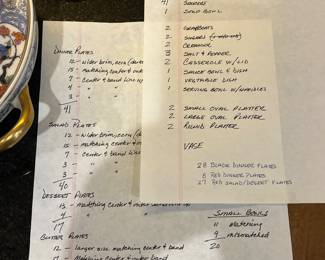 41 SAUCERS
1 SOUP BOWL
2 GRAVYBOATS
2 SUGARS
2 CREAMER
3 SALT & PEPPER
2 CASSEROLE W/LID
1 SAUCE BOWL & DISH
1 VEGETABLE DISH
1 SERVING BOWL W/HANDLES
2 SMALL OVAL PLATTER
2 LARGE OVAL PLATTER
2 ROUND PLATTER
VASE
28 BLACK DINNER PLATES
8 RED DINNER PLATES
27 RED SALAD/DESSERT PLATES
DINNER PLATES
12 - wider brim,
15 - matching center &
7 - center & band
3 - "
4 - "
41
SALAD PLATES
12 - wider brim,
15 - matching center &
7 - center & band
3 - " "
3 - " "
40
DESSERT PLATES
13 - matching center &
4 - "
17
BUTTER PLATES
12 - larger size matching center & band
17 - Matching center &
SMALL BOWLS
11 matching
9 mismatched
20